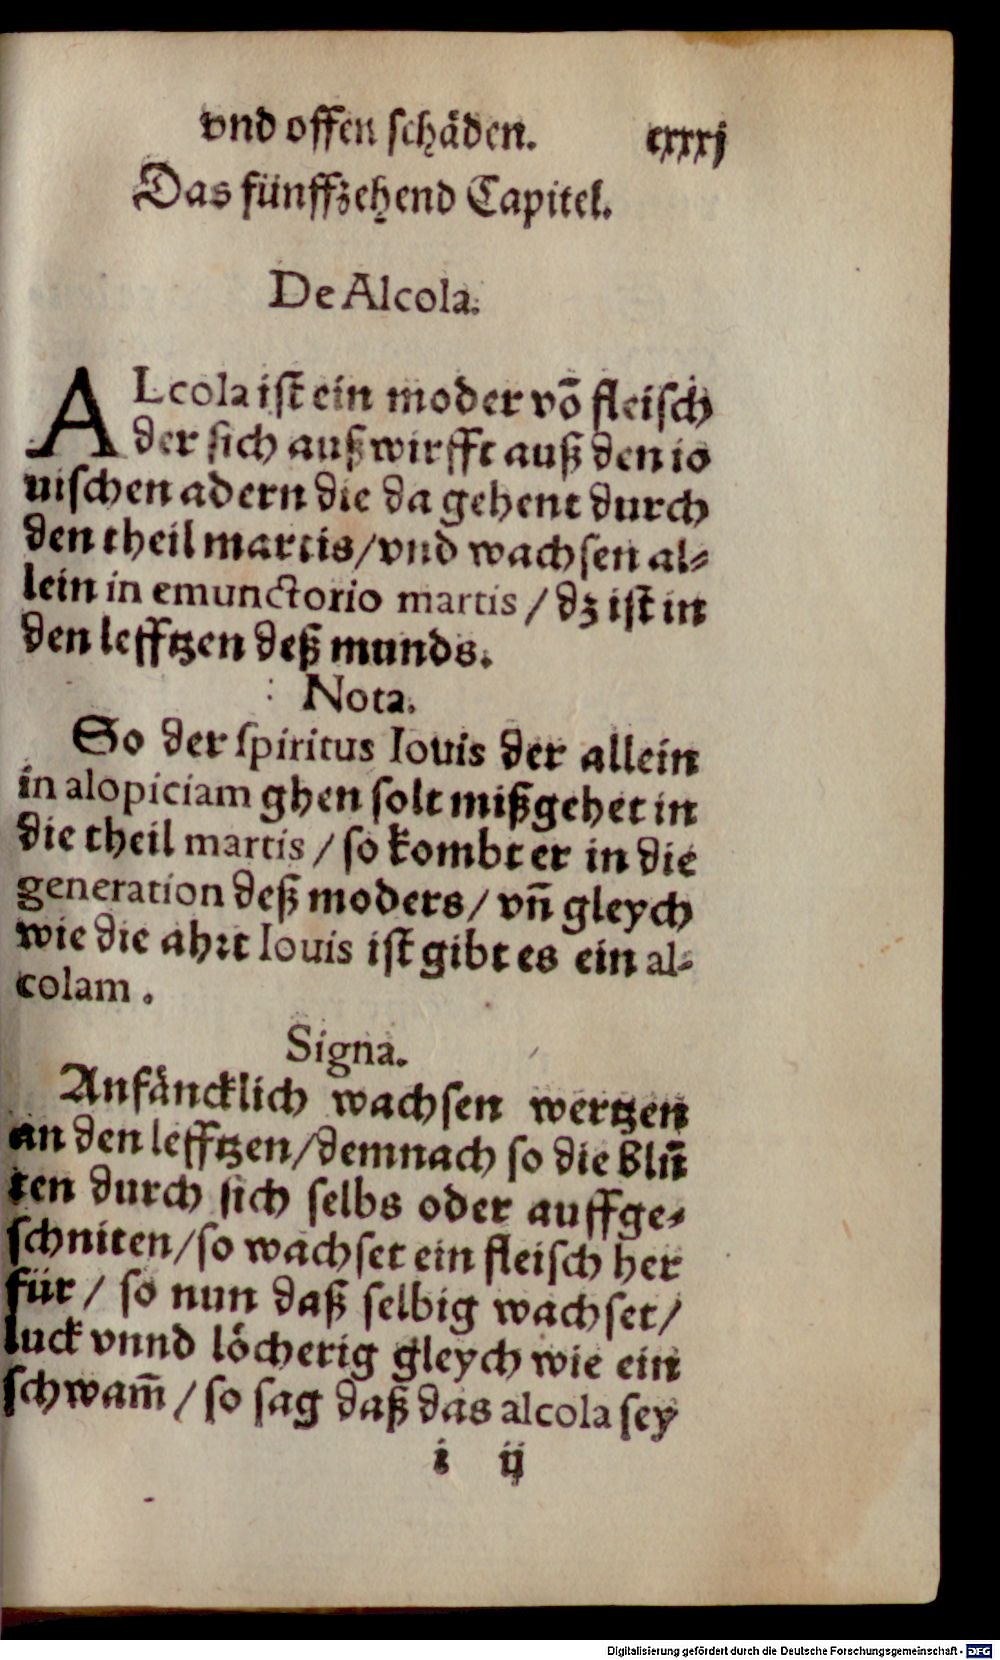 vnd offen schäden. cxxxj
Das fünffzehend Capitel.
De Alcola.
ALcola ist ein moder võ fleisch
der sich außwirfft auß den io
uischen adern die da gehent durch
den theil martis/vnd wachsen al⸗
lein in emunctorio martis / dz ist in
den lefftzen deß munds.
Nota.
So der spiritus Iouis der allein
in alopiciam ghen solt mißgehet in
die theil martis / so kombt er in die
generation deß moders/ vñ gleych
wie die ahrt Iouis ist gibt es ein al⸗
colam .
Signa.
Anfäncklich wachsen wertzen
an den lefftzen/demnach so die Blũ
ten durch sich selbs oder auffge⸗
schniten/so wachset ein fleisch her
für / so nun daß selbig wachset/
luck vnnd löcherig gleych wie ein
schwam̃ / so sag daß das alcola sey
i ij
Digitalisierung gefördert durch die Deutsche Forschungsgemeinschaft - DFG